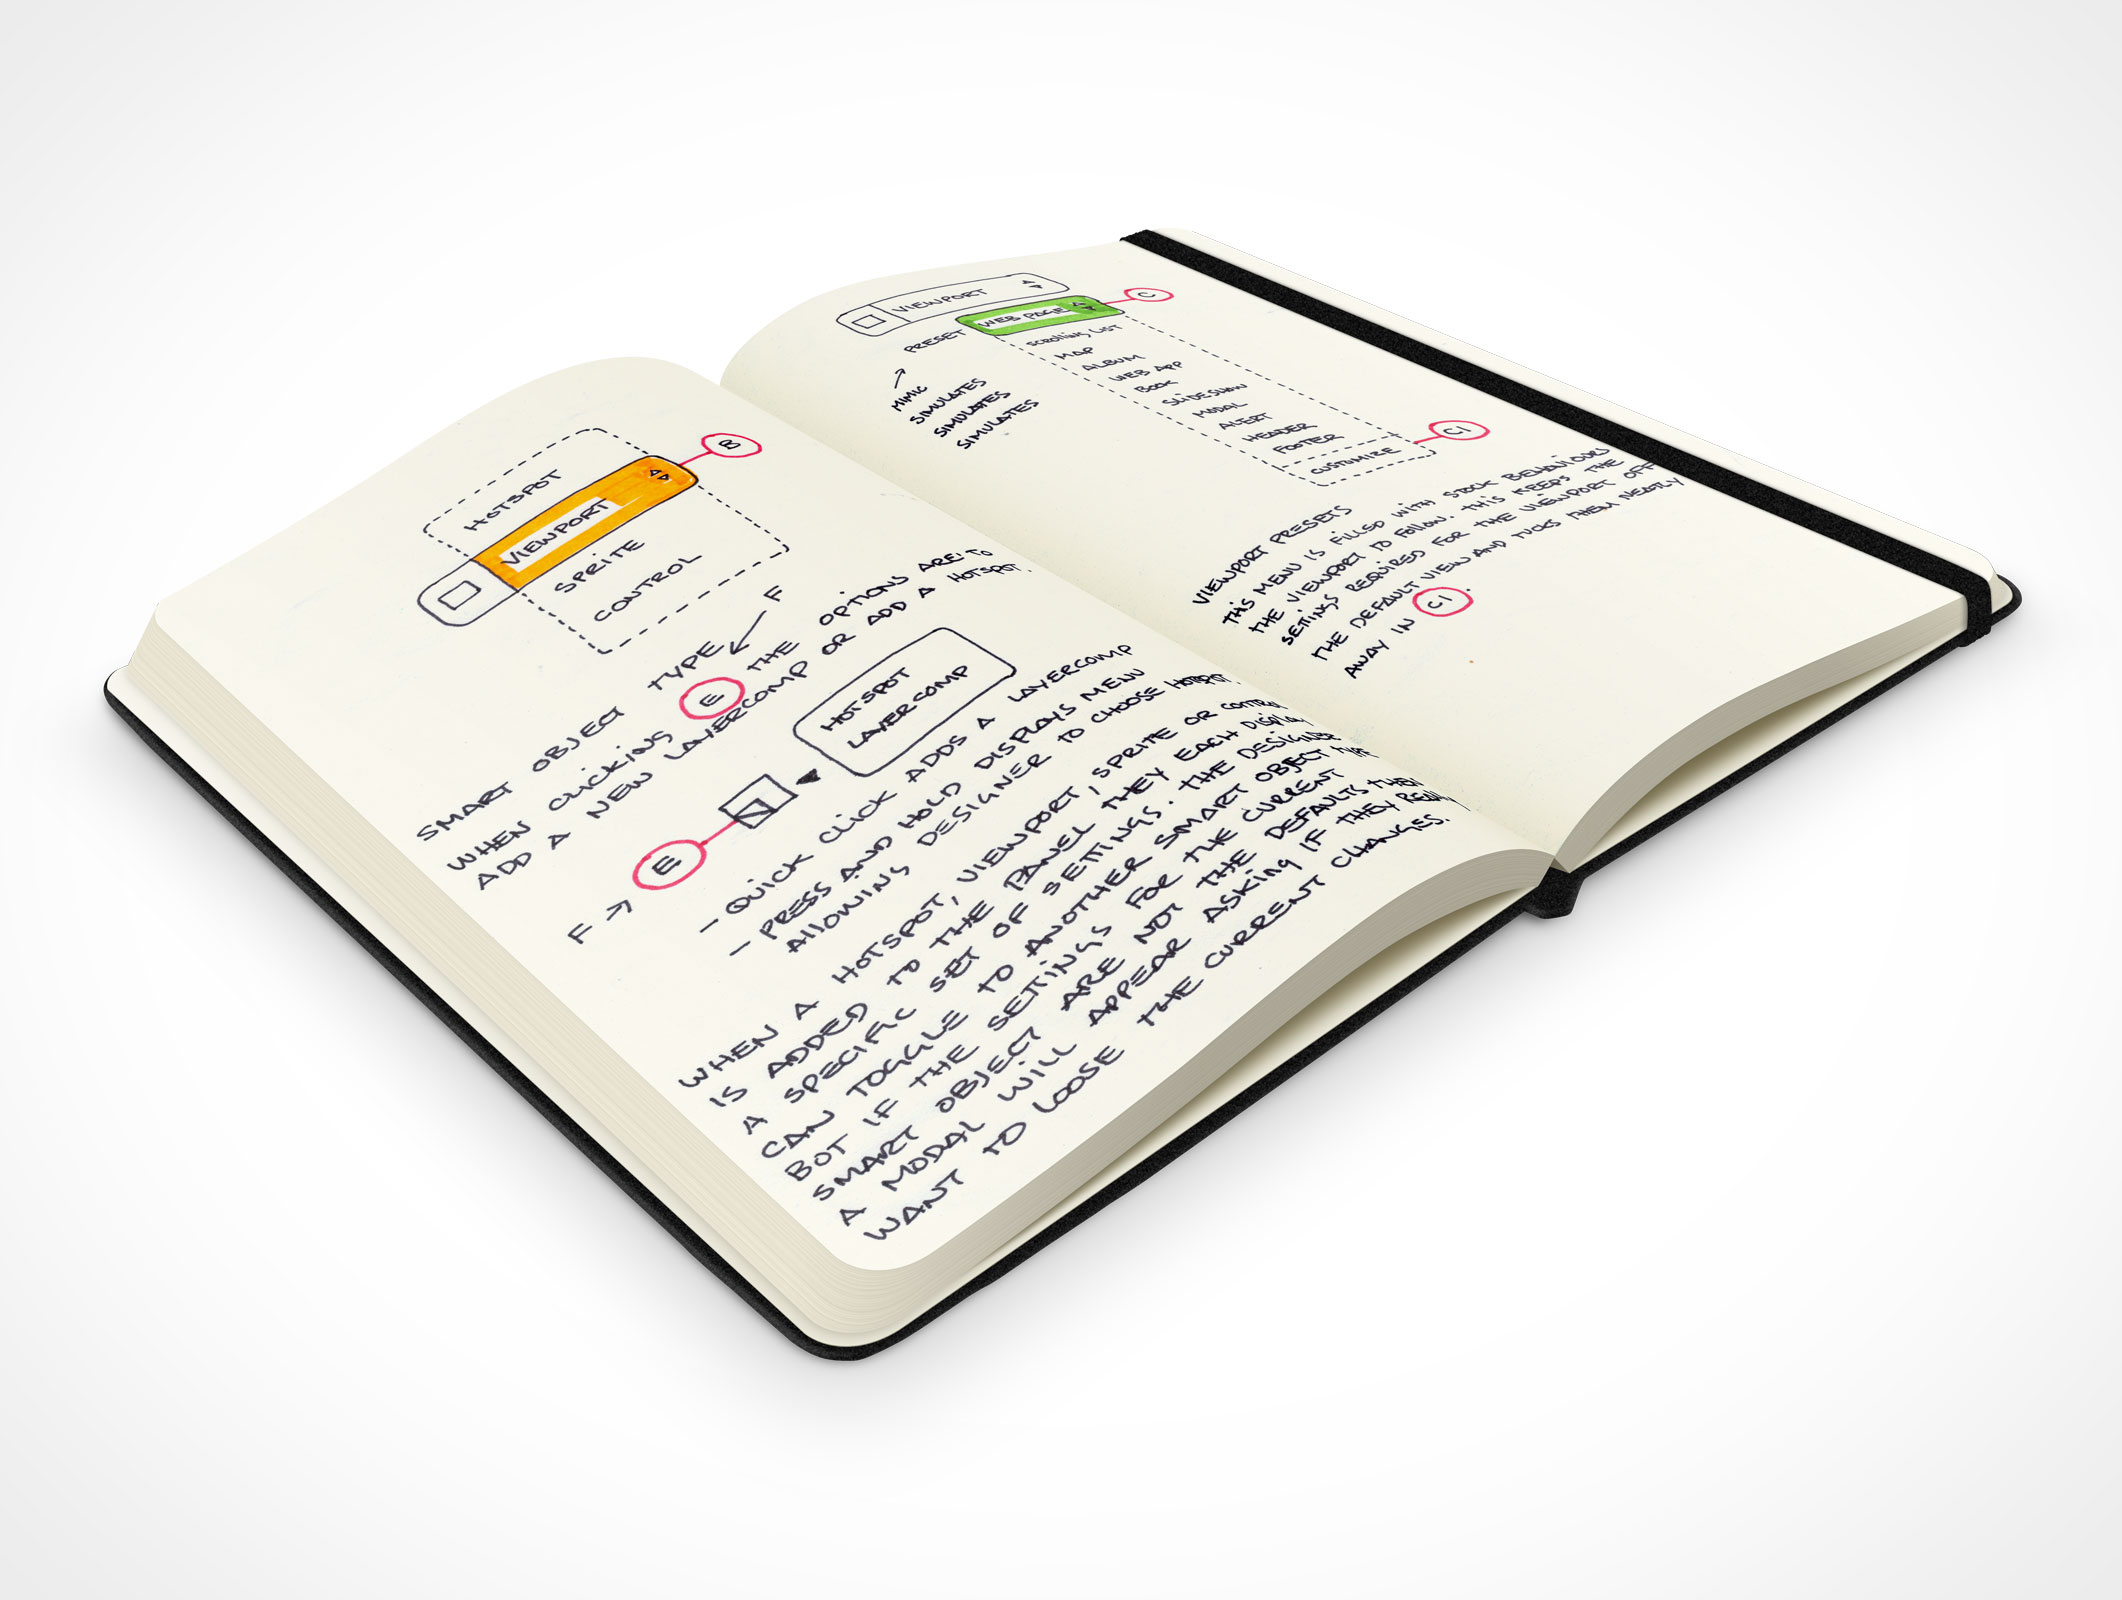 HOTSPOT
VIEWPORT
B
SPRITE
CONTROL
SMART OBJECT TYPE
F
WHEN CLICKING E THE OPTIONS ARE: TO
ADD A NEW LAYERCOMP OR ADD A HOTSPOT.
HOTSPOT
LAYERCOMP
F → E
- QUICK CLICK ADDS A LAYERCOMP
- PRESS AND HOLD DISPLAYS MENU
ALLOWING DESIGNER TO CHOOSE HOTSPOT.
WHEN A HOTSPOT, VIEWPORT, SPRITE OR CONTROL
IS ADDED TO THE PANEL THEY EACH DISPLAY
A SPECIFIC SET OF SETTINGS. THE DESIGNER
CAN TOGGLE TO ANOTHER SMART OBJECT TYPE
BOT IF THE SETTINGS FOR THE CURRENT
SMART OBJECT ARE NOT THE DEFAULTS THEN
A MODAL WILL APPEAR ASKING IF THEY
WANT TO LOOSE THE CURRENT CHANGES.
VIEWPORT
C
PRESET WEB PAGE
SCROLLING LIST
MAP
ALBUM
WEB APP
BOOK
SLIDESHOW
MODAL
ALERT
HEADER
FOOTER
CUSTOMIZE
C1
MIMIC
SIMULATES
SIMULATES
SIMULATES
VIEWPORT PRESETS
THIS MENU IS FILLED WITH STOCK BEHAVIOURS
THE VIEWPORT TO FOLLOW. THIS KEEPS THE
SETTINGS REQUIRED FOR THE VIEWPORT OFF
THE DEFAULT VIEW AND TUCKS THEM NEATLY
AWAY IN C1.